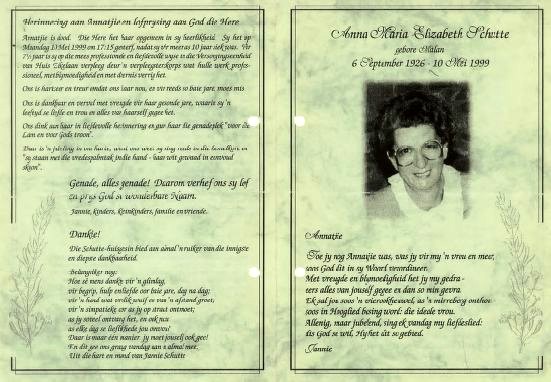 Herinnering aan Annatjie en lofprysing aan God die Here
Annatjie is dood. Die Here het haar opgeneem in sy heerlikheid. Sy het op
Maandag 10 Mei 1999 om 17:15 gesterf, nadat sy vir meer as 10 jaar siek was. Vir
7½ jaar is sy op die mees professionele en liefdevolle wyse in die Versorgingseenheid
van Huis Eikelaan verpleeg deur 'n verpleegsterkorps wat hulle werk profes-
sioneel, met blymoedigheid en met deernis verrig het.
Ons is hartseer en treur omdat ons haar nou, en vir reeds so baie jare, moes mis
Ons is dankbaar en vervul met vreugde vir haar gesonde jare, waarin sy 'n
leeftyd se liefde en trou en alles van haarself gegee het.
Ons dink aan haar in liefdevolle herinnering en gun haar die genadeplek "voor die
Lam en voor Gods troon".
"sy staan met die vredespalmtak in die hand - haar wit gewaad in eenvoud
skoon".
Genade, alles genade! Daarom verhef ons sy lof
en prys God se wonderbare Naam.
Jannie, kinders, kleinkinders, familie en vriende.
Dankie!
Die Schutte-huisgesin bied aan almal 'n ruiker van die innigste
en diepste dankbaarheid.
Belangriker nog:
Hoe sê mens dankie vir 'n glimlag,
vir begrip, hulp en liefde oor baie jare, dag na dag;
vir 'n hand wat vrolik wuif as van 'n afstand groet;
vir 'n simpatieke oor as jy op straat ontmoet;
as jy soveel ontvang het, en ook nou
as elke dag se lieflikhede jou omvou?
Daar is maar één manier: jy moet jouself ook gee!
En dit gee ons graag vandag aan u almal mee.
Uit die hart en mond van Jannie Schutte
Anna Maria Elizabeth Schutte
gebore Malan
6 September 1926 - 10 Mei 1999
Annatjie
Toe jy nog Annatjie was, was jy vir my 'n vrou en meer,
soos God dit in sy Woord verordineer.
Met vreugde en blymoedigheid het jy gedra -
eers alles van jouself gegee en dan so min gevra.
Ek sal jou soos 'n wierookheuwel, as 'n mirreberg onthou
soos in Hooglied besing word: die ideale vrou.
Allenig, maar jubelend, sing ek vandag my liefdeslied:
dis God se wil, Hy het dit so gebied.
Jannie